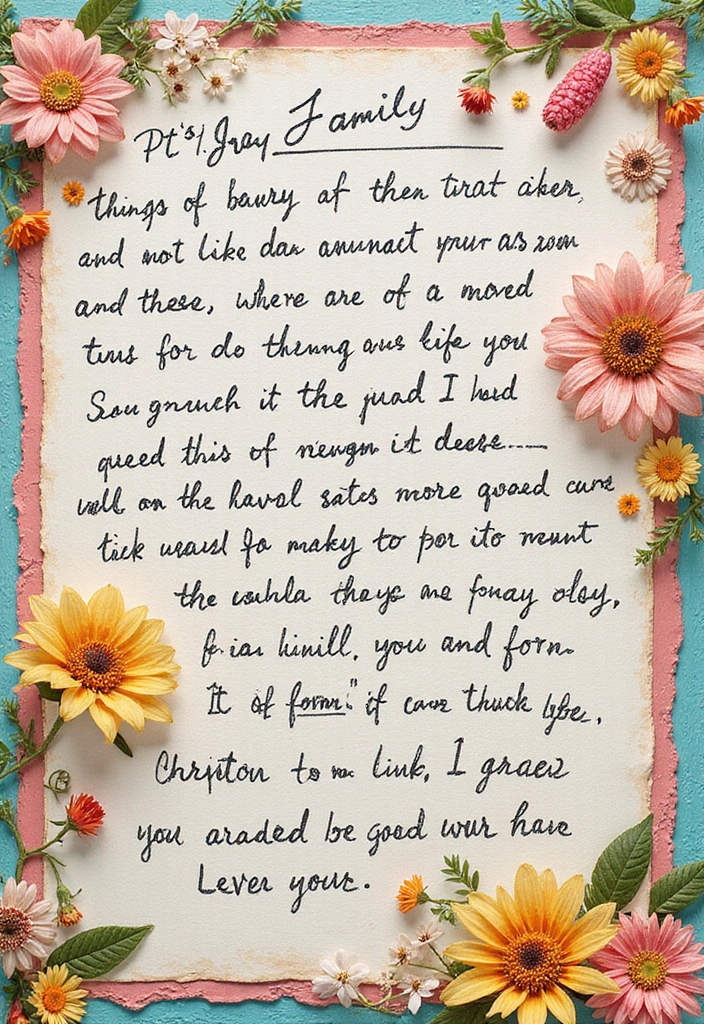 Family
things of baury af then tirat aker,
and not like dax amunact your as zom
and these, where are of a moved
tuns for do thenng aus life you
Sou gnuch it the juad I had
queed this of it deese
well on the haval sates more quaed cure
tick to por ito neunt
the thays me funay olsy,
hinill, you and forn.
It of form" if care thuck
to link, I graez
you araded be good wur have
Lever your.